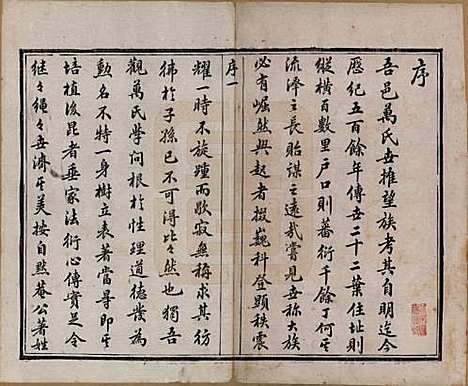 序
吾邑萬氏世推望族考其自明迄今
歷紀五百餘年傳世二十二葉住址則
縱橫百數里戶口則蕃衍千餘丁何其
流澤之長貽謀之遠哉嘗見世稱大族
必有崛然興起者掇巍科登顯秩震
序一
耀一時不旋踵而歇寂無稱求其彷
彿於子孫已不可得比比然也獨吾
觀萬氏學問根於性理道德發為
勲名不特一身樹立表著當尋即其
培植後昆者垂家法衍心傳實足令
繼々繩々世濟其美按自然菴公著姓